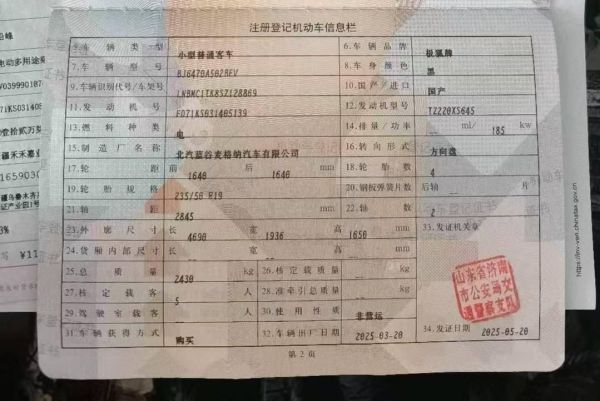 注册登记机动车信息栏
5.车辆类型 小型普通客车 6.车辆品牌 极狐牌
7.车辆型号 BJ6470A502BEV 8.车身颜色 黑
9.车辆识别代号/车架号 LNBMC1TK8SZ128869 10.国产/进口 国产
11.发动机号 F071KS031405139 12.发动机型号 TZ220XS645
13.燃料种类 电 14.排量/功率 ml/ 185 kw
15.制造厂名称 北汽蓝谷麦格纳汽车有限公司 16.转向形式 方向盘
17.轮距 前 1640 后 1640 mm 18.轮胎数 4
19.轮胎规格 235/50 R19 20.钢板弹簧片数 后轴 -- 片
21.轴距 2845 22.轴数 2
23.外廓尺寸 长 4690 宽 1936 高 1650 mm 33.发证机关章
24.货厢内部尺寸 长 宽 高
25.总质量 2430 kg 26.核定载质量 kg
27.核定载客 5 人 28.准牵引总质量 kg
29.驾驶室载客 人 30.使用性质 非营运
31.车辆获得方式 购买 32.车辆出厂日期 2025-03-20 34.发证日期 2025-05-20
第2页
山东省济南
市公安局交
通警察支队